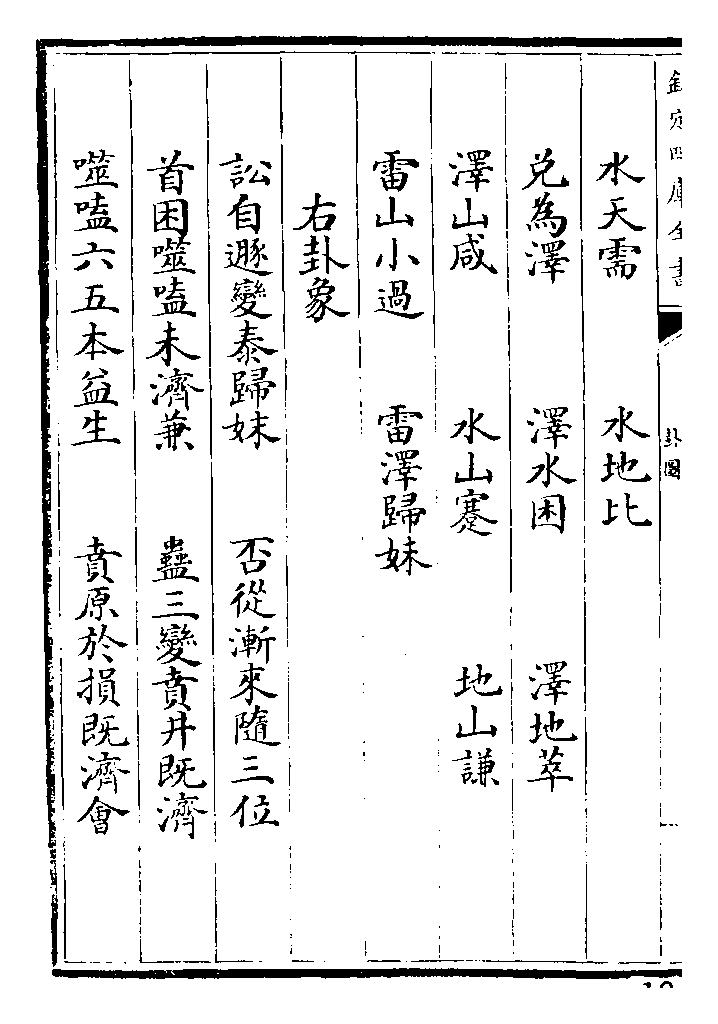 欽定四庫全書
卦圖
水天需 水地比
兌為澤 澤水困 澤地萃
澤山咸 水山蹇 地山謙
雷山小過 雷澤歸妹
右卦象
訟自遯變泰歸妹 否從漸來隨三位
首困噬嗑未濟兼 蠱三變賁井既濟
噬嗑六五本益生 賁原於損既濟會